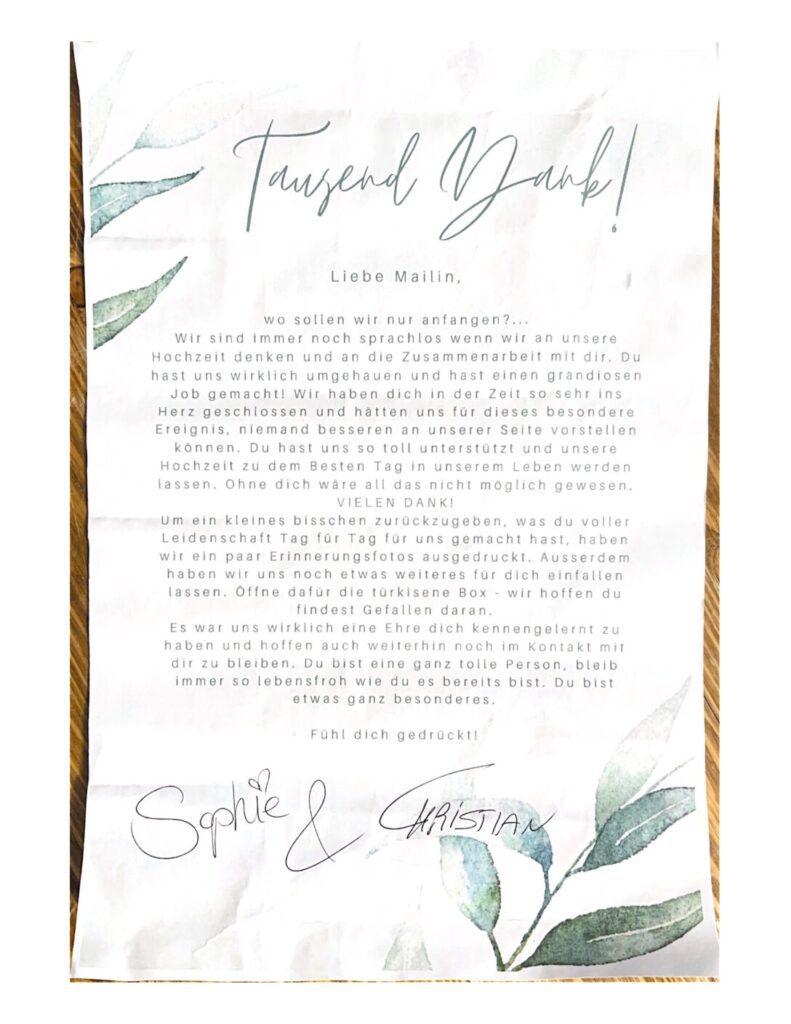 Tausend Dank!
Liebe Mailin,
wo sollen wir nur anfangen?...
Wir sind immer noch sprachlos wenn wir an unsere
Hochzeit denken und an die Zusammenarbeit mit dir. Du
hast uns wirklich umgehauen und hast einen grandiosen
Job gemacht! Wir haben dich in der Zeit so sehr ins
Herz geschlossen und hätten uns für dieses besondere
Ereignis, niemand besseren an unserer Seite vorstellen
können. Du hast uns so toll unterstützt und unsere
Hochzeit zu dem Besten Tag in unserem Leben werden
lassen. Ohne dich wäre all das nicht möglich gewesen.
VIELEN DANK!
Um ein kleines bisschen zurückzugeben, was du voller
Leidenschaft Tag für Tag für uns gemacht hast, haben
wir ein paar Erinnerungsfotos ausgedruckt. Ausserdem
haben wir uns noch etwas weiteres für dich einfallen
lassen. Öffne dafür die türkisene Box - wir hoffen du
findest Gefallen daran.
Es war uns wirklich eine Ehre dich kennengelernt zu
haben und hoffen auch weiterhin noch im Kontakt mit
dir zu bleiben. Du bist eine ganz tolle Person, bleib
immer so lebensfroh wie du es bereits bist. Du bist
etwas ganz besonderes.
Fühl dich gedrückt!
Sophie & CHRISTIAN